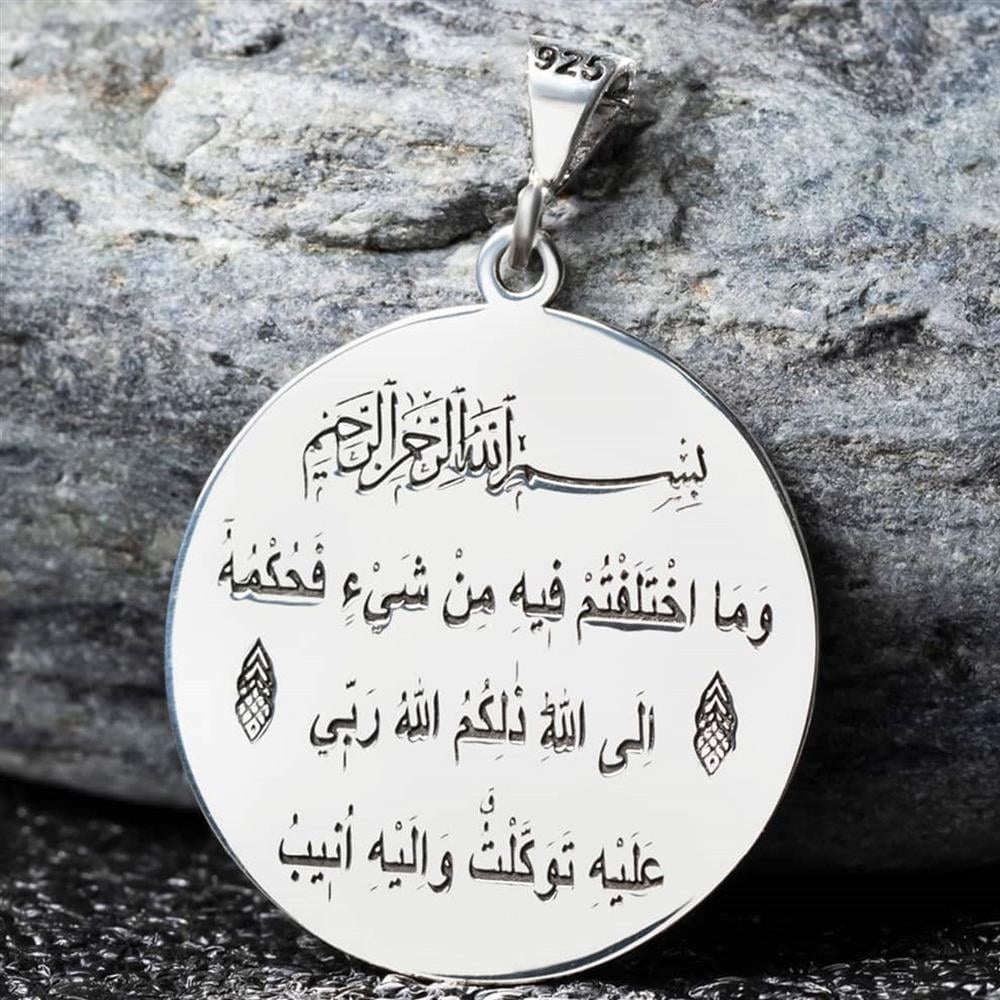 925
بِسْمِ اللّٰهِ الرَّحْمٰنِ الرَّحِيْمِ
وَمَا اخْتَلَفْتُمْ فٖيهِ مِنْ شَيْءٍ فَحُكْمُهُٓ
اِلَى اللّٰهِؕ ذٰلِكُمُ اللّٰهُ رَبّٖي
عَلَيْهِ تَوَكَّلْتُۗ وَاِلَيْهِ اُنٖيبُ